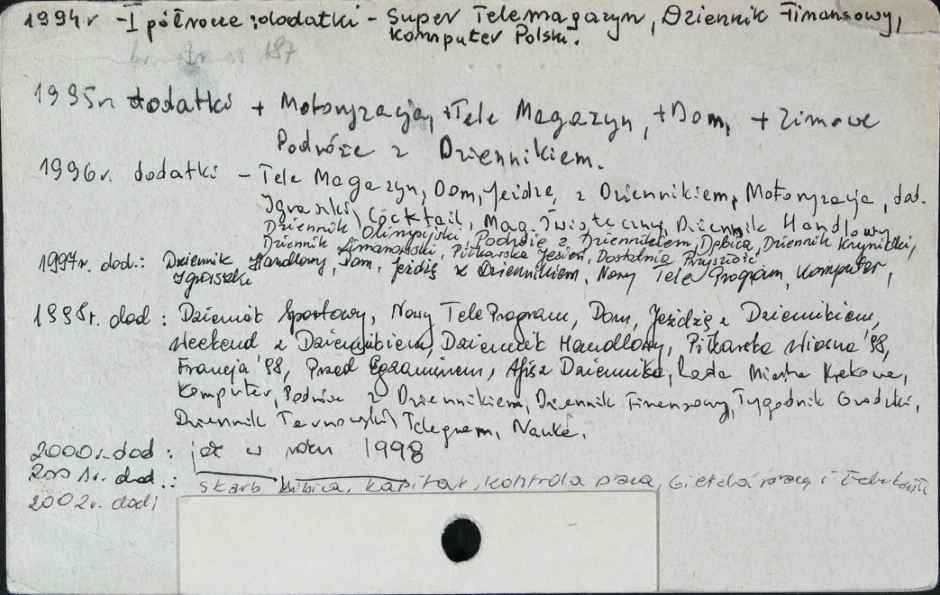 1994r - I półrocze: dodatki - Super Telemagazyn, Dziennik Finansowy,
Komputer Polski.
1995r. dodatki + Motoryzacja, + Tele Magazyn, + Dom, + Zimowe
Podróże z Dziennikiem.
1996r. dodatki - Tele Magazyn, Dom, Jeżdżę z Dziennikiem, Motoryzacja, dod.
Igraszki, Cocktail, Mag. Świąteczny, Dziennik Handlowy
Dziennik Olimpijski, Podróże z Dziennikiem, Dębica, Dziennik Krynicki,
Dziennik Limanowski, Piłkarska Jesień, Dostatnia Przyszłość
1997r. dod.: Dziennik Handlowy, Dom, Jeżdżę z Dziennikiem, Nowy Tele Program, Komputer,
Igraszki
1998r. dod: Dziennik Sportowy, Nowy TeleProgram, Dom, Jeżdżę z Dziennikiem,
Weekend z Dziennikiem, Dziennik Handlowy, Piłkarska Wiosna '98,
Francja '98, Przed Egzaminem, Afisz Dziennika, Rada Miasta Krakowa,
Komputer, Podróże z Dziennikiem, Dziennik Finansowy, Tygodnik Grodzki,
Dziennik Tarnowski, Telegram, Nauka.
2000r. dod: jak w roku 1998
2001r. dod.: skarb kibica, kapitał, kontrola praca, Giełda pracy i
2002r. dod: